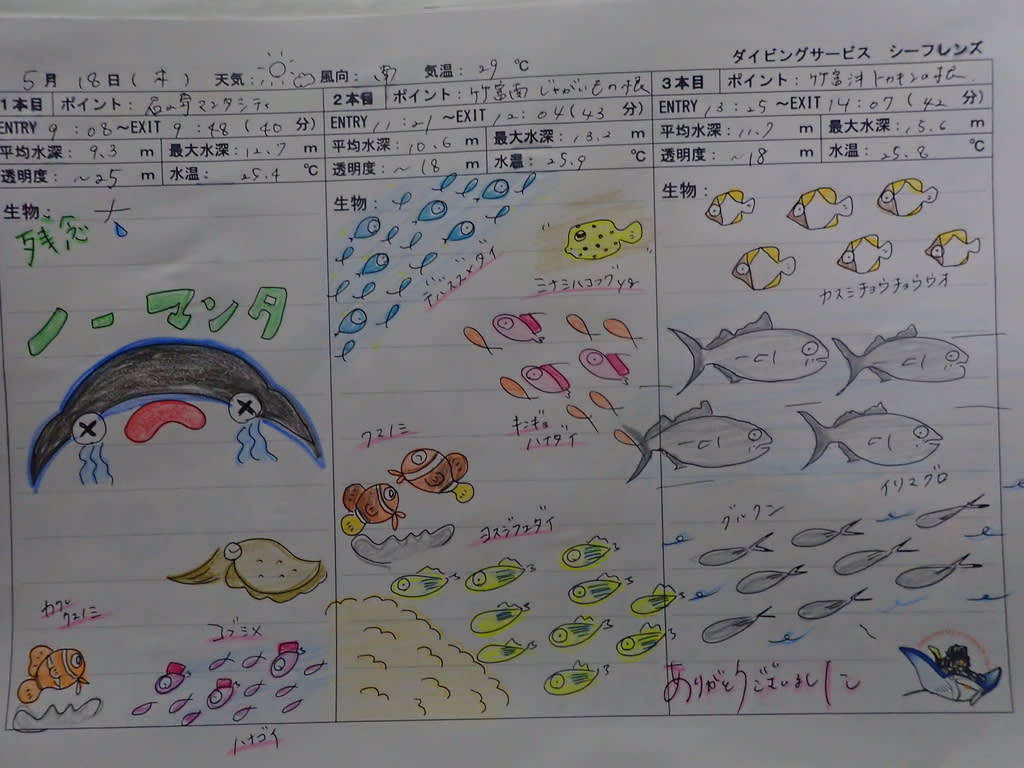 ダイビングサービス シーフレンズ
5月 18日(木) 天気: 風向: 南 気温: 29 ℃
1本目 ポイント: 石の宇マンタシティ
ENTRY 9:08〜EXIT 9:48(40 分)
平均水深: 9.3 m 最大水深: 12.7 m
透明度: 〜25 m 水温: 25.4 ℃
生物:
残念
ノーマンタ
コブシメ
カクレクマノミ
ハナゴイ
2本目 ポイント: 竹富南 じゃがいもの根
ENTRY 11:21〜EXIT 12:04(43 分)
平均水深: 10.6 m 最大水深: 13.2 m
透明度: 〜18 m 水温: 25.9 ℃
生物:
デバスズメダイ
ミナミハコフグyg
キンギョ
ハナダイ
クマノミ
ヨスジフエダイ
3本目 ポイント: 竹富沖 トカキンの根
ENTRY 13:25〜EXIT 14:07(42 分)
平均水深: 11.7 m 最大水深: 15.6 m
透明度: 〜18 m 水温: 25.8 ℃
生物:
カスミチョウチョウウオ
イソマグロ
グルクン
ありがとうございました